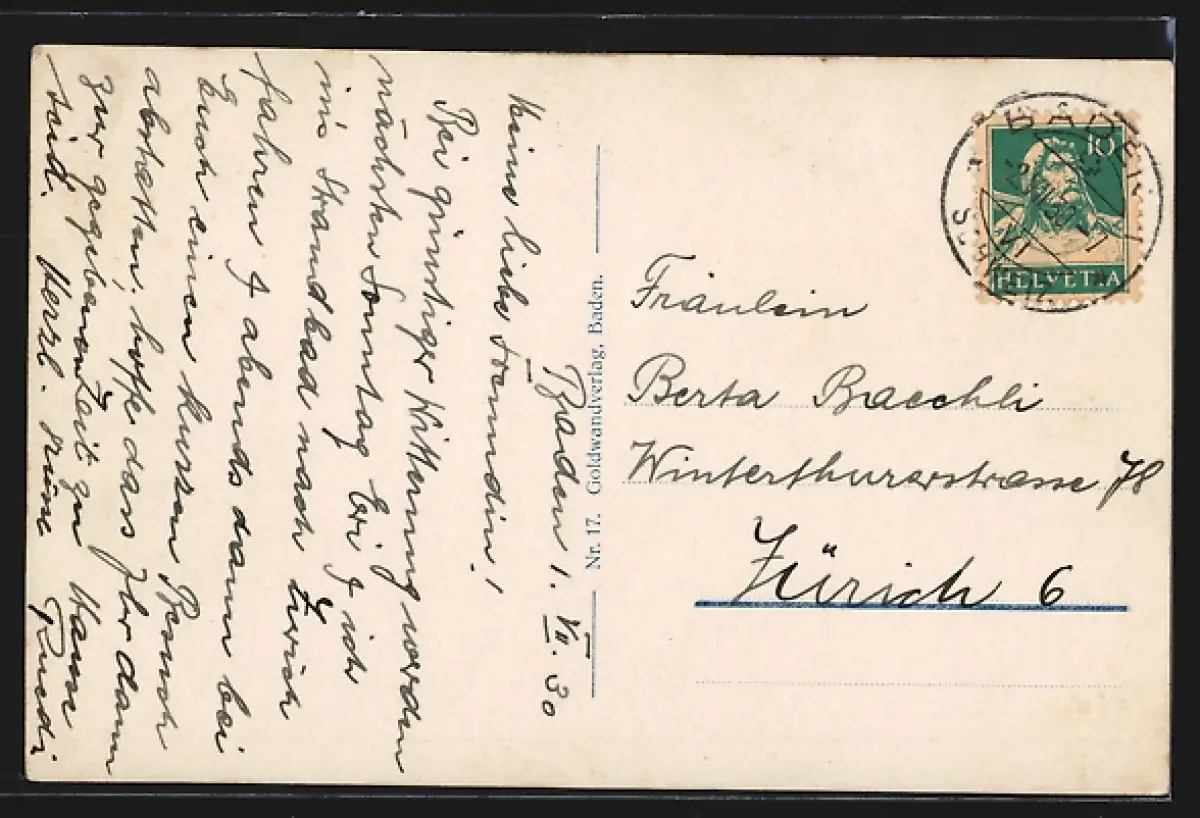 Baden 1. VII. 30
Meine liebe Freundin!
Bei günstiger Witterung werden
nächsten Sonntag Eri & ich
ins Strandbad nach Zürich
fahren & abends dann bei
Euch einen kurzen Besuch
abstatten, hoffe dass Ihr dann
zur gegebenen Zeit zu Hause
seid. Herzl. Grüsse Ruedi
Nr. 17. Goldwandverlag, Baden.
BADEN
10
HELVETIA
Fräulein
Berta Baechli
Winterthurerstrasse 78
Zürich 6